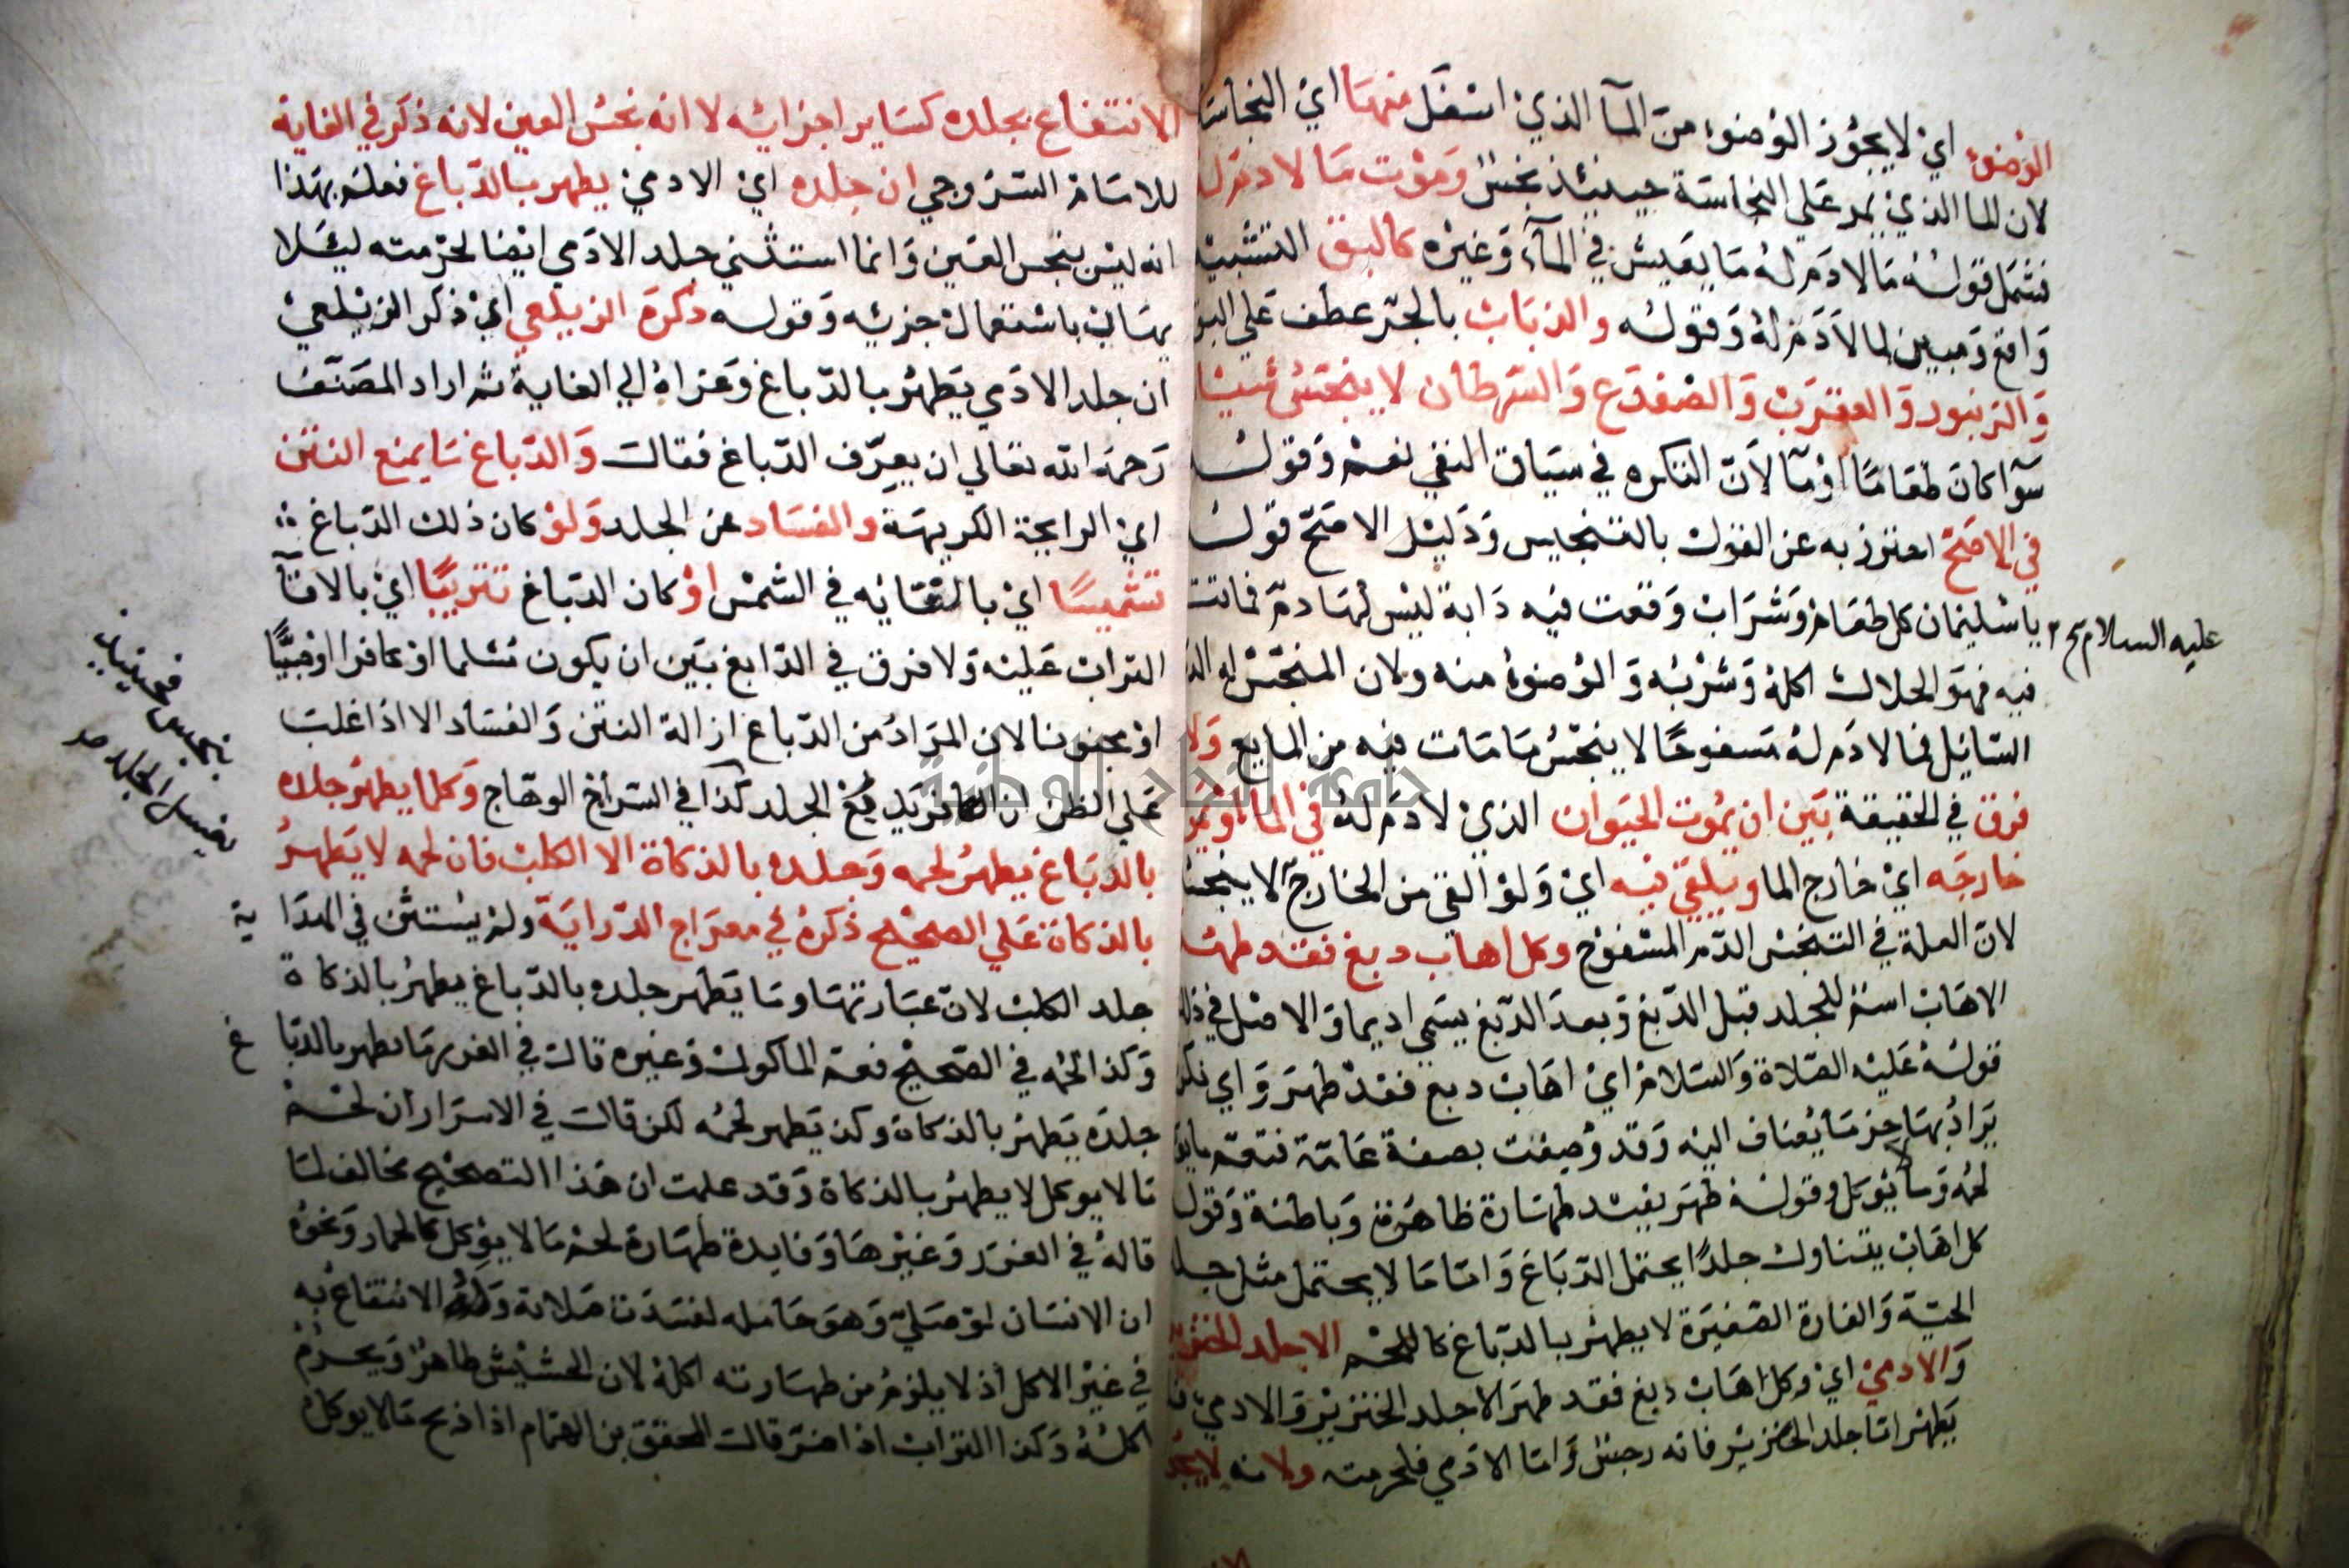 الوضوء اي لا يجوز الوضوء من المآ الذي اسفل منها اي النجاسة
لان الما الذي يمر علي النجاسة حينيئذ نجس وموت ما لا دم له
فشمل قوله ما لا دم له ما يعيش في المآء وغيره كالبق التشبيه
واقع ومبين لما لا دم له وقوله والذباب بالجر عطف علي البق
والزنبور والعقرب والضفدع والسرطان لا ينجس شيئا
سوآ كان طعاما او مآ لان النكره في سياق النفي تعم وقوله
في الاصح احترز به عن القول بالتنجيس ودليل الاصح قوله
عليه السلام صح يا سليمان كل طعام وشراب وقعت فيه دابة ليس لها دم فماتت
فيه فهو الحلال اكله وشربه والوضوء منه ولان المنجس له الدم
السايل فما لا دم له مسفوحا لا ينجس ما مات فيه من المايع ولا
فرق في الحقيقة بين ان يموت الحيوان الذي لا دم له في الما او يموت
خارجه اي خارج الما ويلقي فيه اي ولو القي من الخارج لا ينجس
لان العلة في التنجس الدم المسفوح وكل اهاب دبغ فقد طهر
الاهاب اسم للجلد قبل الدبغ وبعد الدبغ يسمي اديما والاصل في ذلك
قوله عليه الصلاة والسلام اي اهاب دبغ فقد طهر واي نكرة
يراد بها جزء ما يضاف اليه وقد وصفت بصفة عامة فتعم ما يوكل
لحمه وما لا يوكل وقوله طهر يفيد طهارة ظاهره وباطنه وقوله
كل اهاب يتناول جلدا يحتمل الدباغ واما ما لا يحتمل مثل جلد
الحية والفارة الصغيرة لا يطهر بالدباغ كاللحم الا جلد الخنزير
والادمي اي وكل اهاب دبغ فقد طهر الا جلد الخنزير والادمي فلا
يطهر اما جلد الخنزير فانه رجس واما الادمي فلحرمته ولانه لا يجوز
الانتفاع بجلده كساير اجزائه لا انه نجس العين لانه ذكر في الغاية
للامام السروجي ان جلده اي الادمي يطهر بالدباغ فعلم بهذا
انه ليس بنجس العين وانما استثني جلد الادمي ايضا لحرمته ليئلا
يهان باستعمال جزئه وقوله ذكره الزيلعي اي ذكر الزيلعي
ان جلد الادمي يطهر بالدباغ وعزاه الي الغاية ثم اراد المصنف
رحمه الله تعالي ان يعرف الدباغ فقال والدباغ ما يمنع النتن
اي الرايحة الكريهة والفساد عن الجلد ولو كان ذلك الدباغ
تشميسا اي بالقائه في الشمس او كان الدباغ تتريبا اي بالاقآ
التراب عليه ولا فرق في الدابغ بين ان يكون مسلما او كافرا او صبيا
او مجنونا لان المراد من الدباغ ازالة النتن والفساد الا اذا غلب
علي الظن ان الكافر يدبغ الجلد كذا في السراج الوهاج وكلما يطهر جلده
بالدباغ يطهر لحمه وجلده بالذكاة الا الكلب فان لحمه لا يطهر
بالذكاة علي الصحيح ذكره في معراج الدراية ولم يستثن في الهداية
جلد الكلب لان عبارتها وما يطهر جلده بالدباغ يطهر بالذكاة
وكذا لحمه في الصحيح فعم الماكول وغيره قال في الغرر ما يطهر بالدباغ
جلده يطهر بالذكاة وكذا يطهر لحمه لكن قال في الاسرار ان لحم
ما لا يوكل لا يطهر بالذكاة وقد علمت ان هذا التصحيح مخالف لما
قاله في الغرر وغيرها وفايدة طهارة لحم ما لا يوكل كالحمار ونحوه
ان الانسان لو صلي وهو حامله لفسدت صلاته وله الانتفاع به
في غير الاكل اذ لا يلزم من طهارته اكله لان الحشيش طاهر ويحرم
اكله وكذا التراب اذا ضر قال المحقق بن الهمام اذا ذبح ما لا يوكل
بنجس فحينيذ
يغسل الجلد صح